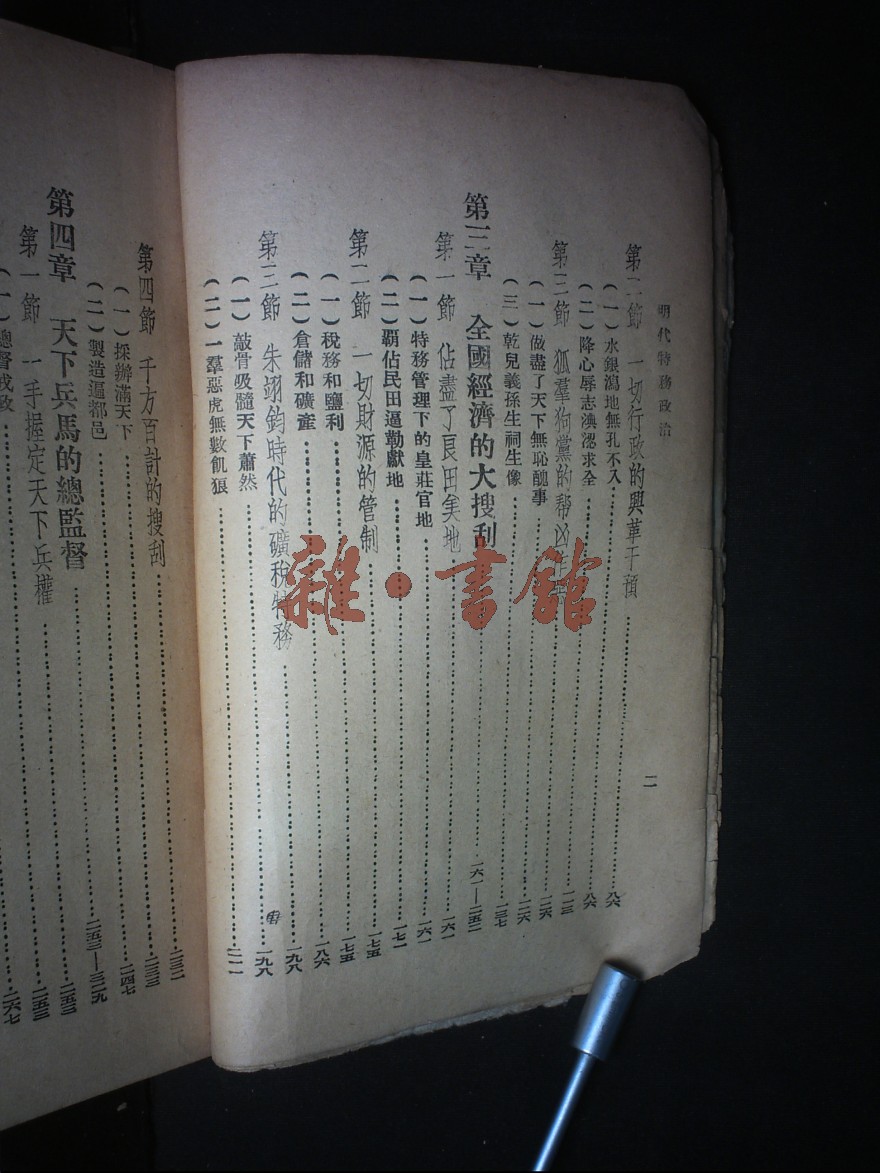 明代特務政治
二
第二節 一切行政的興革干預……八六
(一)水銀瀉地無孔不入……八六
(二)降心辱志澳涊求全……八六
第三節 狐羣狗黨的幫凶……一二三
(一)做盡了天下無恥醜事……一二六
(二)……一二六
(三)乾兒義孫生祠生像……一三七
第三章 全國經濟的大搜刮……一六一—二五二
第一節 佔盡了良田美地……一六一
(一)特務管理下的皇莊官地……一六一
(二)覇佔民田逼勒獻地……一七一
第二節 一切財源的管制……一七五
(一)稅務和鹽利……一七五
(二)倉儲和礦產……一八六
第三節 朱翊鈞時代的礦稅特務……一九八
(一)敲骨吸髓天下蕭然……一九八
(二)一羣惡虎無數飢狼……二一一
第四節 千方百計的搜刮……二三二
(一)採辦滿天下……二三三
(二)製造遍都邑……二四七
第四章 天下兵馬的總監督……二五三—三二九
第一節 一手握定天下兵權……二五三
(一)總督戎政……二五三
二六七
雜·書館